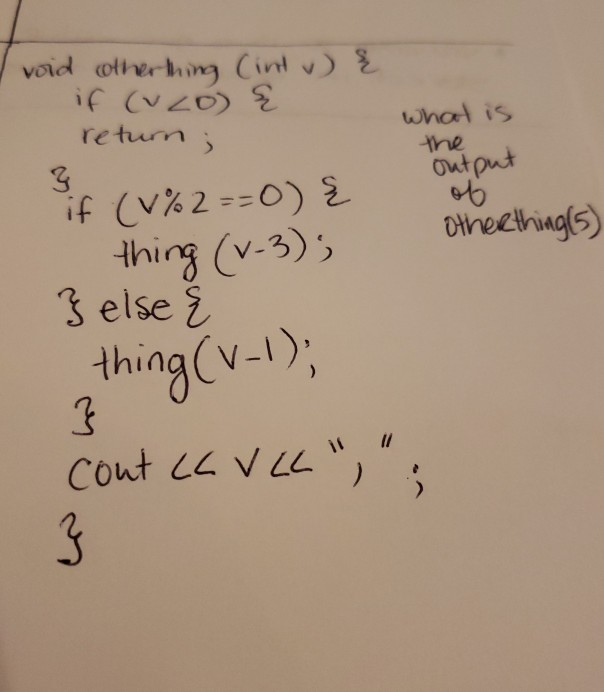 void otherthing (int v) {
if (v<0) {
return ;
}
if (v%2==0) {
thing (v-3);
} else {
thing(v-1);
}
cout << v << ",";
}
what is
the
output
of
otherthing(5)